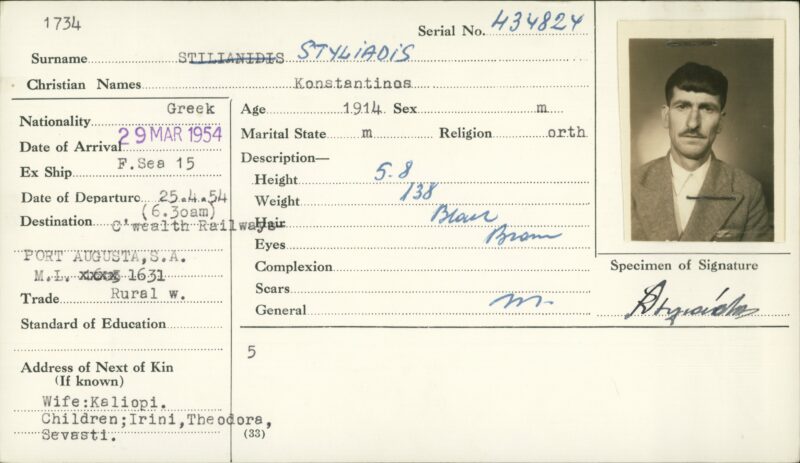 1734
Serial No. 434824
Surname STILIANIDIS STYLIADIS
Christian Names Konstantinos
Nationality Greek
Date of Arrival 29 MAR 1954
Ex Ship F.Sea 15
Date of Departure 25.4.54
(6.30am)
Destination C'wealth Railways
PORT AUGUSTA, S.A.
M.L. xxxx 1631
Trade Rural w.
Standard of Education
Address of Next of Kin
(If known)
Wife:Kaliopi.
Children;Irini,Theodora,
Sevasti.
Age 1914 Sex m
Marital State m Religion orth
Description—
Height 5.8
Weight 138
Hair Black
Eyes Brown
Complexion
Scars
General
5
(33)
Specimen of Signature